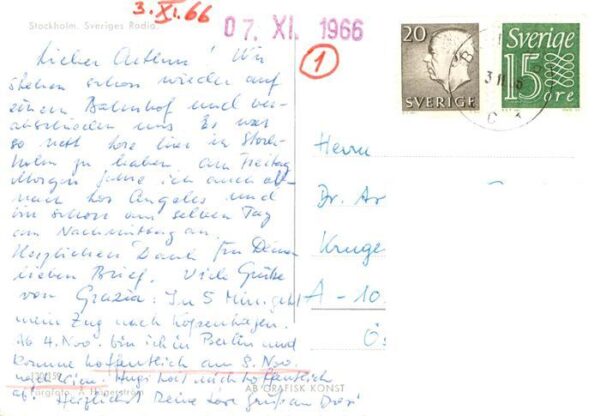 Stockholm. Sveriges Radio.
3. XI. 66
07. XI. 1966
1
20
SVERIGE
Sverige
15
öre
Lieber Arthur! Wir
stehen schon wieder auf
einem Bahnhof und ver-
abschieden uns. Es war
so nett Lore hier in Stock-
holm zu haben. Am Freitag
Morgen fahre ich auch ab
nach Los Angeles und
bin schon am selben Tag
am Nachmittag an.
Herzlichen Dank für Deinen
lieben Brief. Viele Grüße
von Grazia. In 5 Min. geht
mein Zug nach Kopenhagen.
Ab 4. Nov. bin ich in Berlin und
komme hoffentlich am 8. Nov.
nach Wien. holt mich hoffentlich
ab! Herzlichst Deine Lore Gruß an
Herrn
Dr. Ar
Kruge
A-10
Ö
Färgfoto: A. Hägerström
AB GRAFISK KONST